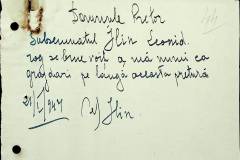 Domnule Pretor
Subsemnatul Ilin Leonid.
rog se bine voiți a mă numi ca
grăjdari pe lângă aceasta pretură
21/I/947
Ilin.